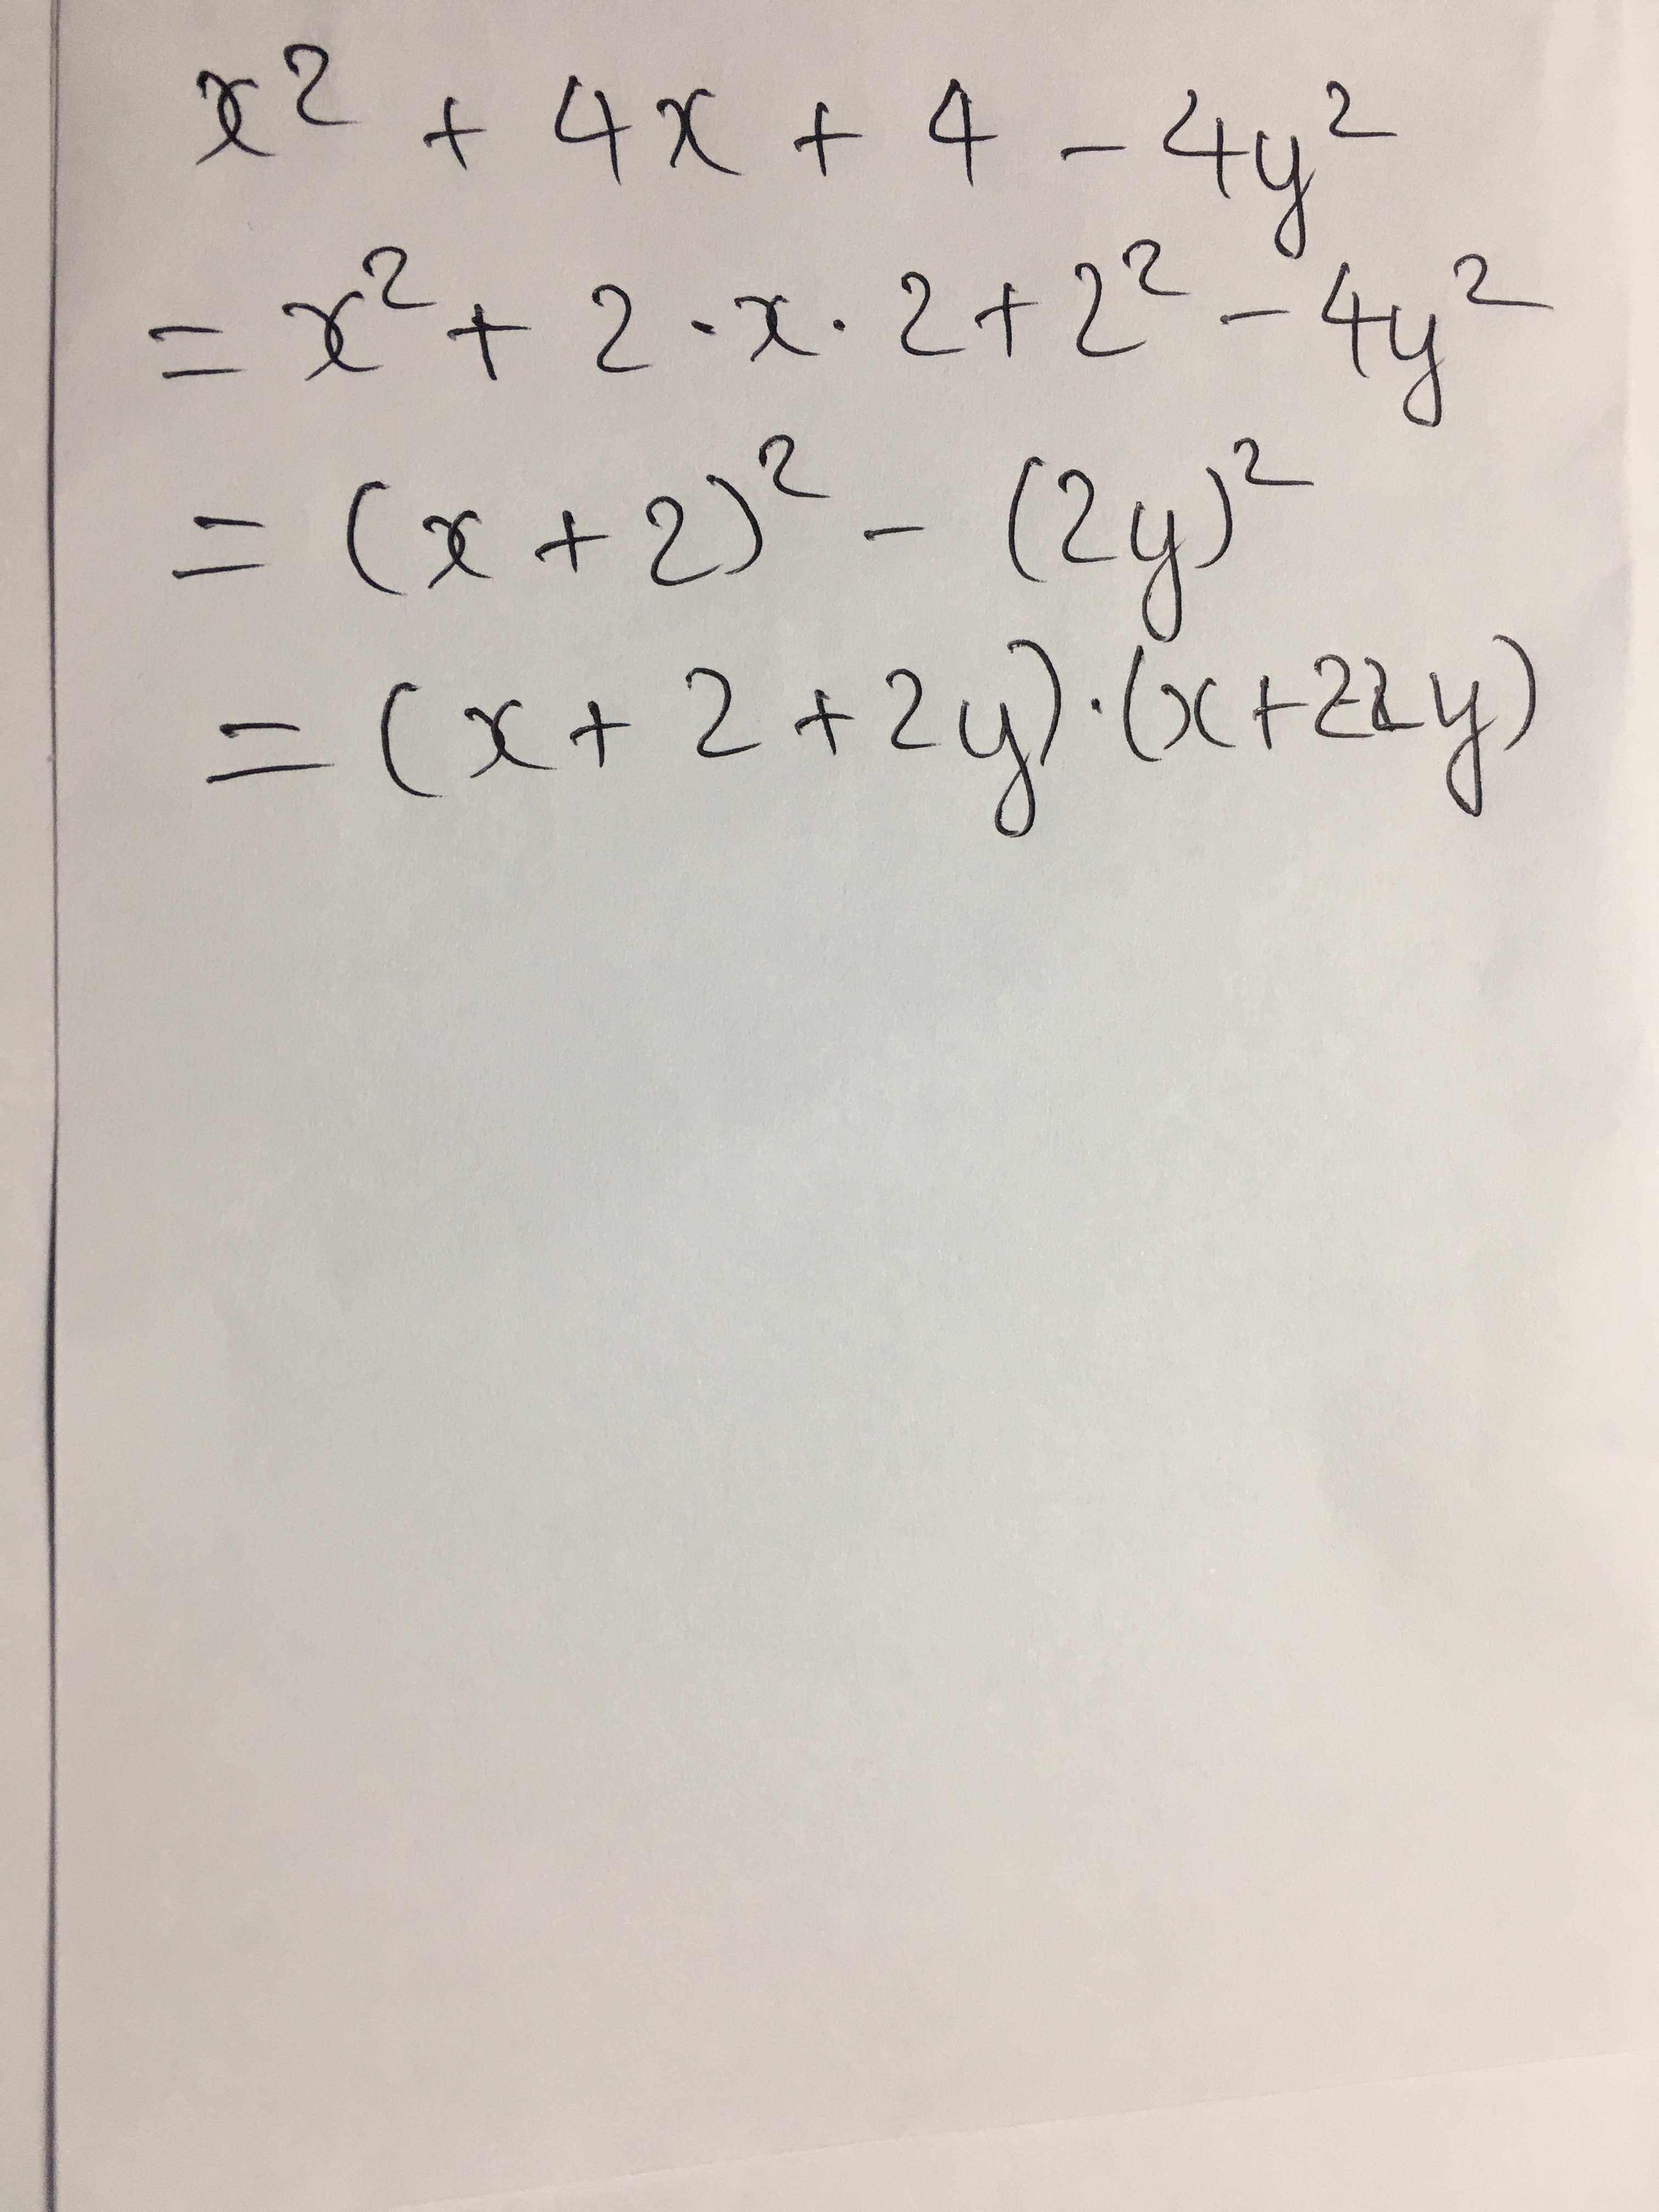 x² + 4x + 4 - 4y²
= x² + 2 · x · 2 + 2² - 4y²
= (x + 2)² - (2y)²
= (x + 2 + 2y) · (x + 2 2y)